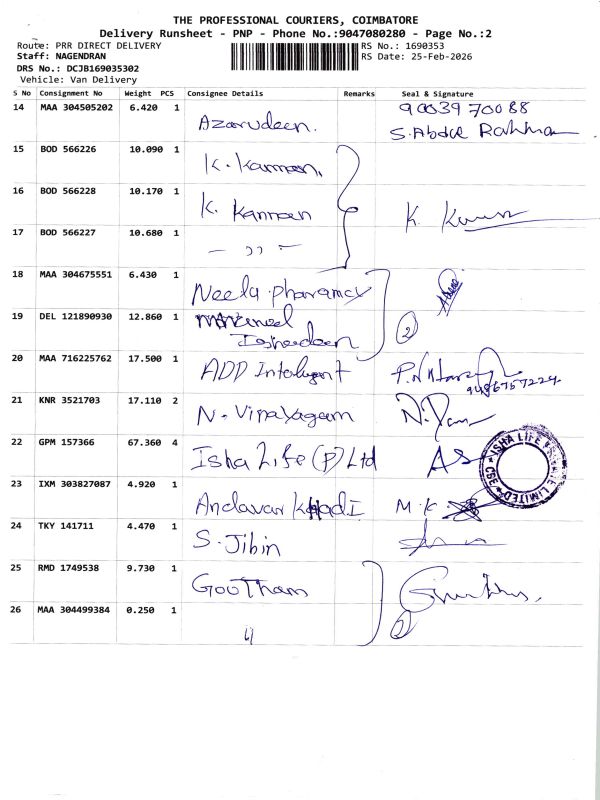 THE PROFESSIONAL COURIERS, COIMBATORE
Delivery Runsheet - PNP - Phone No.:9047080280 - Page No.:2
Route: PRR DIRECT DELIVERY
Staff: NAGENDRAN
DRS No.: DCJB169035302
Vehicle: Van Delivery
RS No.: 1690353
RS Date: 25-Feb-2026
S No Consignment No Weight PCS Consignee Details Remarks Seal & Signature
14 MAA 304505202 6.420 1 Azarudeen. 9003970088
S. Abdul Rahman
15 BOD 566226 10.090 1 K. Kannan.
16 BOD 566228 10.170 1 K. Kannan K.
17 BOD 566227 10.680 1 — ,, —
18 MAA 304675551 6.430 1 Neela pharamcy
19 DEL 121890930 12.860 1 2
20 MAA 716225762 17.500 1 ADD Intelugent 9486757224
21 KNR 3521703 17.110 2 N. Vinayagam
22 GPM 157366 67.360 4 Isha Life (P) Ltd AS
ISHA LIFE PRIVATE LIMITED CSE
23 IXM 303827087 4.920 1 Andavar KHadI M.K.
24 TKY 141711 4.470 1 S. Jibin
25 RMD 1749538 9.730 1 GooTham
26 MAA 304499384 0.250 1 4 2